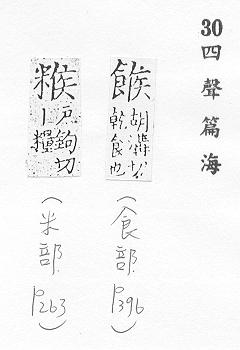 30四聲篇海
餱
胡溝切
乾食也
(食部 P396)
糇
戶鉤切
丨糧
(米部 P263)